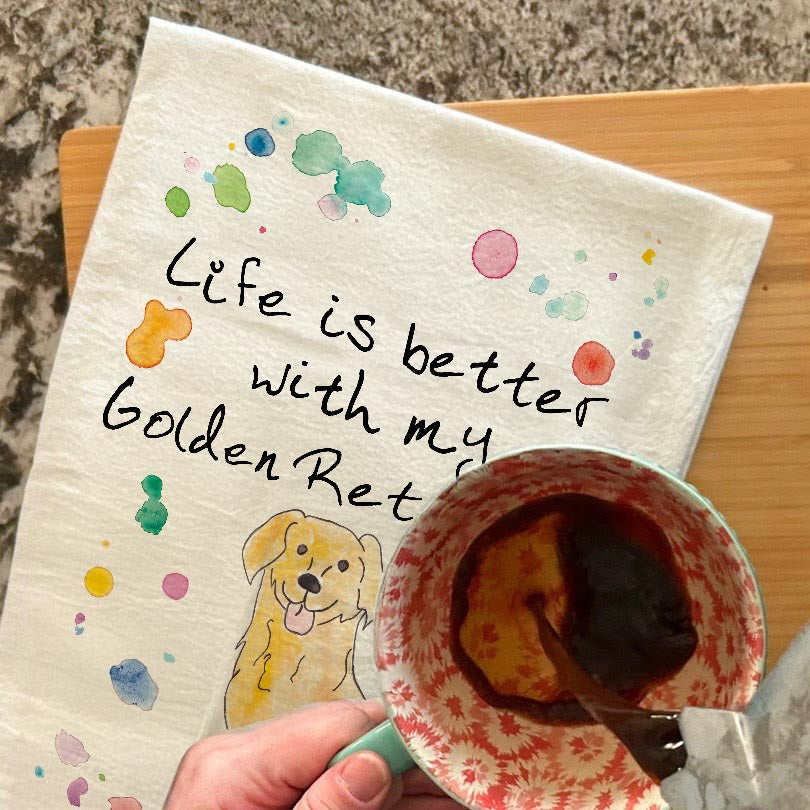 Life is better
with my
Golden Ret